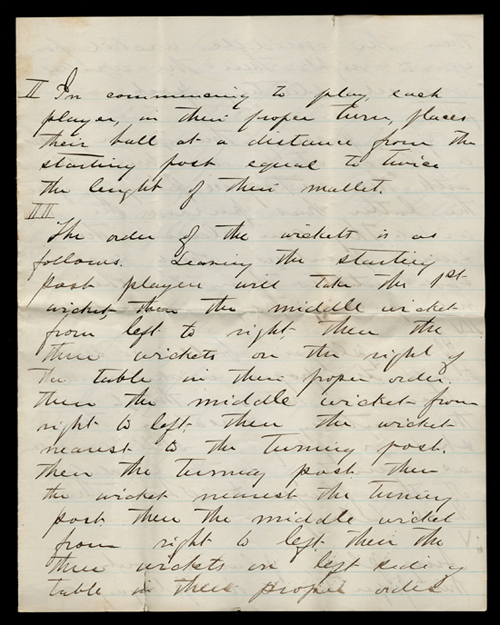 II In commencing to play, each
player, in their proper turn, places
their ball at a distance from the
starting post equal to twice
the lenght of their mallet.
III
The order of the wickets is as
follows. Leaving the starting
post players will take the 1st
wicket, then the middle wicket
from left to right, then the
three wickets on the right of
the table in their proper order,
then the middle wicket from
right to left, then the wicket
nearest to the turning post.
then the turning post then
the wicket nearest the turning
post then the middle wicket
from right to left then the
three wickets on left side of
table in their proper order